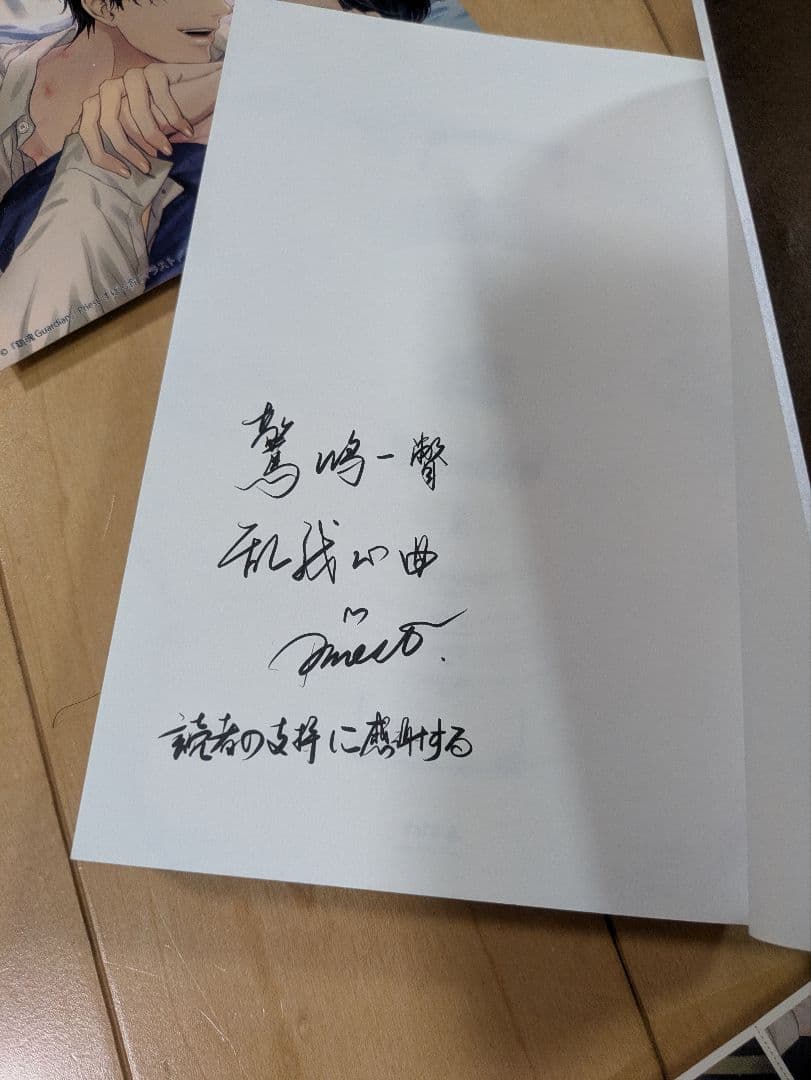 ©『鎮魂 Guardian』Priest
驚鴻一瞥
乱我心曲
Priest.
読者の支持に感謝する